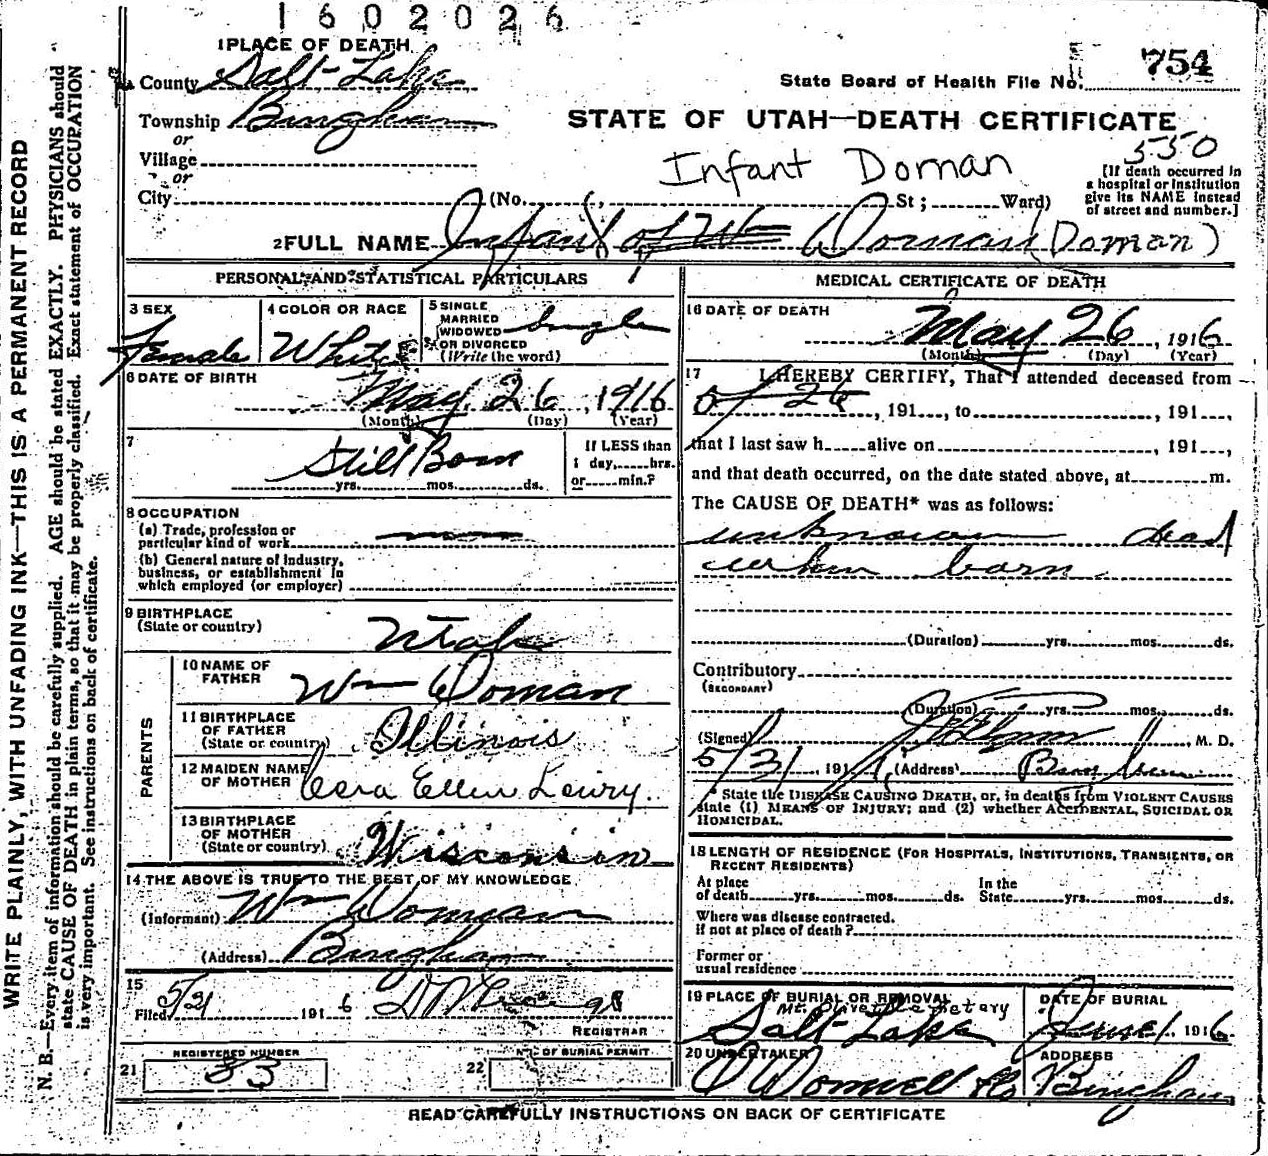 1602026
1 PLACE OF DEATH
County Salt Lake
State Board of Health File No. 754
Township Bingham
STATE OF UTAH—DEATH CERTIFICATE
or
Village
550
Infant Doman
or
City (No. St; Ward)
[If death occurred in a hospital or institution give its NAME instead of street and number.]
2 FULL NAME Infant of Wm Dorman (Doman)
PERSONAL AND STATISTICAL PARTICULARS
3 SEX
Female
4 COLOR OR RACE
White
5 SINGLE
MARRIED
WIDOWED
OR DIVORCED
(Write the word)
Single
6 DATE OF BIRTH
May 26, 1916
(Month) (Day) (Year)
7
Still Born
yrs. mos. ds.
If LESS than
1 day, hrs.
or min.?
8 OCCUPATION
(a) Trade, profession or
particular kind of work
(b) General nature of industry,
business, or establishment in
which employed (or employer)
9 BIRTHPLACE
(State or country)
Utah
PARENTS
10 NAME OF
FATHER
Wm Doman
11 BIRTHPLACE
OF FATHER
(State or country)
Illinois
12 MAIDEN NAME
OF MOTHER
Cora Ellen Lowry.
13 BIRTHPLACE
OF MOTHER
(State or country)
Wisconsin
14 THE ABOVE IS TRUE TO THE BEST OF MY KNOWLEDGE
(Informant) Wm Doman
(Address) Bingham
15
Filed 5/31 1916
REGISTRAR
21
REGISTERED NUMBER
83
22
NO. OF BURIAL PERMIT
MEDICAL CERTIFICATE OF DEATH
16 DATE OF DEATH
May 26, 1916
(Month) (Day) (Year)
17 I HEREBY CERTIFY, That I attended deceased from
5/26, 191, to, 191,
that I last saw h alive on, 191,
and that death occurred, on the date stated above, at m.
The CAUSE OF DEATH* was as follows:
unknown dead
when born
(Duration) yrs. mos. ds.
Contributory
(SECONDARY)
(Duration) yrs. mos. ds.
(Signed) M. D.
5/31, 191 (Address) Bingham
* State the DISEASE CAUSING DEATH, or, in deaths from VIOLENT CAUSES
state (1) MEANS OF INJURY; and (2) whether ACCIDENTAL, SUICIDAL OR
HOMICIDAL.
18 LENGTH OF RESIDENCE (FOR HOSPITALS, INSTITUTIONS, TRANSIENTS, OR
RECENT RESIDENTS)
At place
of death yrs. mos. ds.
In the
State yrs. mos. ds.
Where was disease contracted.
if not at place of death?
Former or
usual residence
19 PLACE OF BURIAL OR REMOVAL
Mt. Olivet Cemetery
Salt Lake
DATE OF BURIAL
June 1 1916
20 UNDERTAKER
O'Donnell Co
ADDRESS
Bingham
READ CAREFULLY INSTRUCTIONS ON BACK OF CERTIFICATE
WRITE PLAINLY, WITH UNFADING INK—THIS IS A PERMANENT RECORD
N. B.—Every item of information should be carefully supplied. AGE should be stated EXACTLY. PHYSICIANS should
state CAUSE OF DEATH in plain terms, so that it may be properly classified. Exact statement of OCCUPATION
is very important. See instructions on back of certificate.